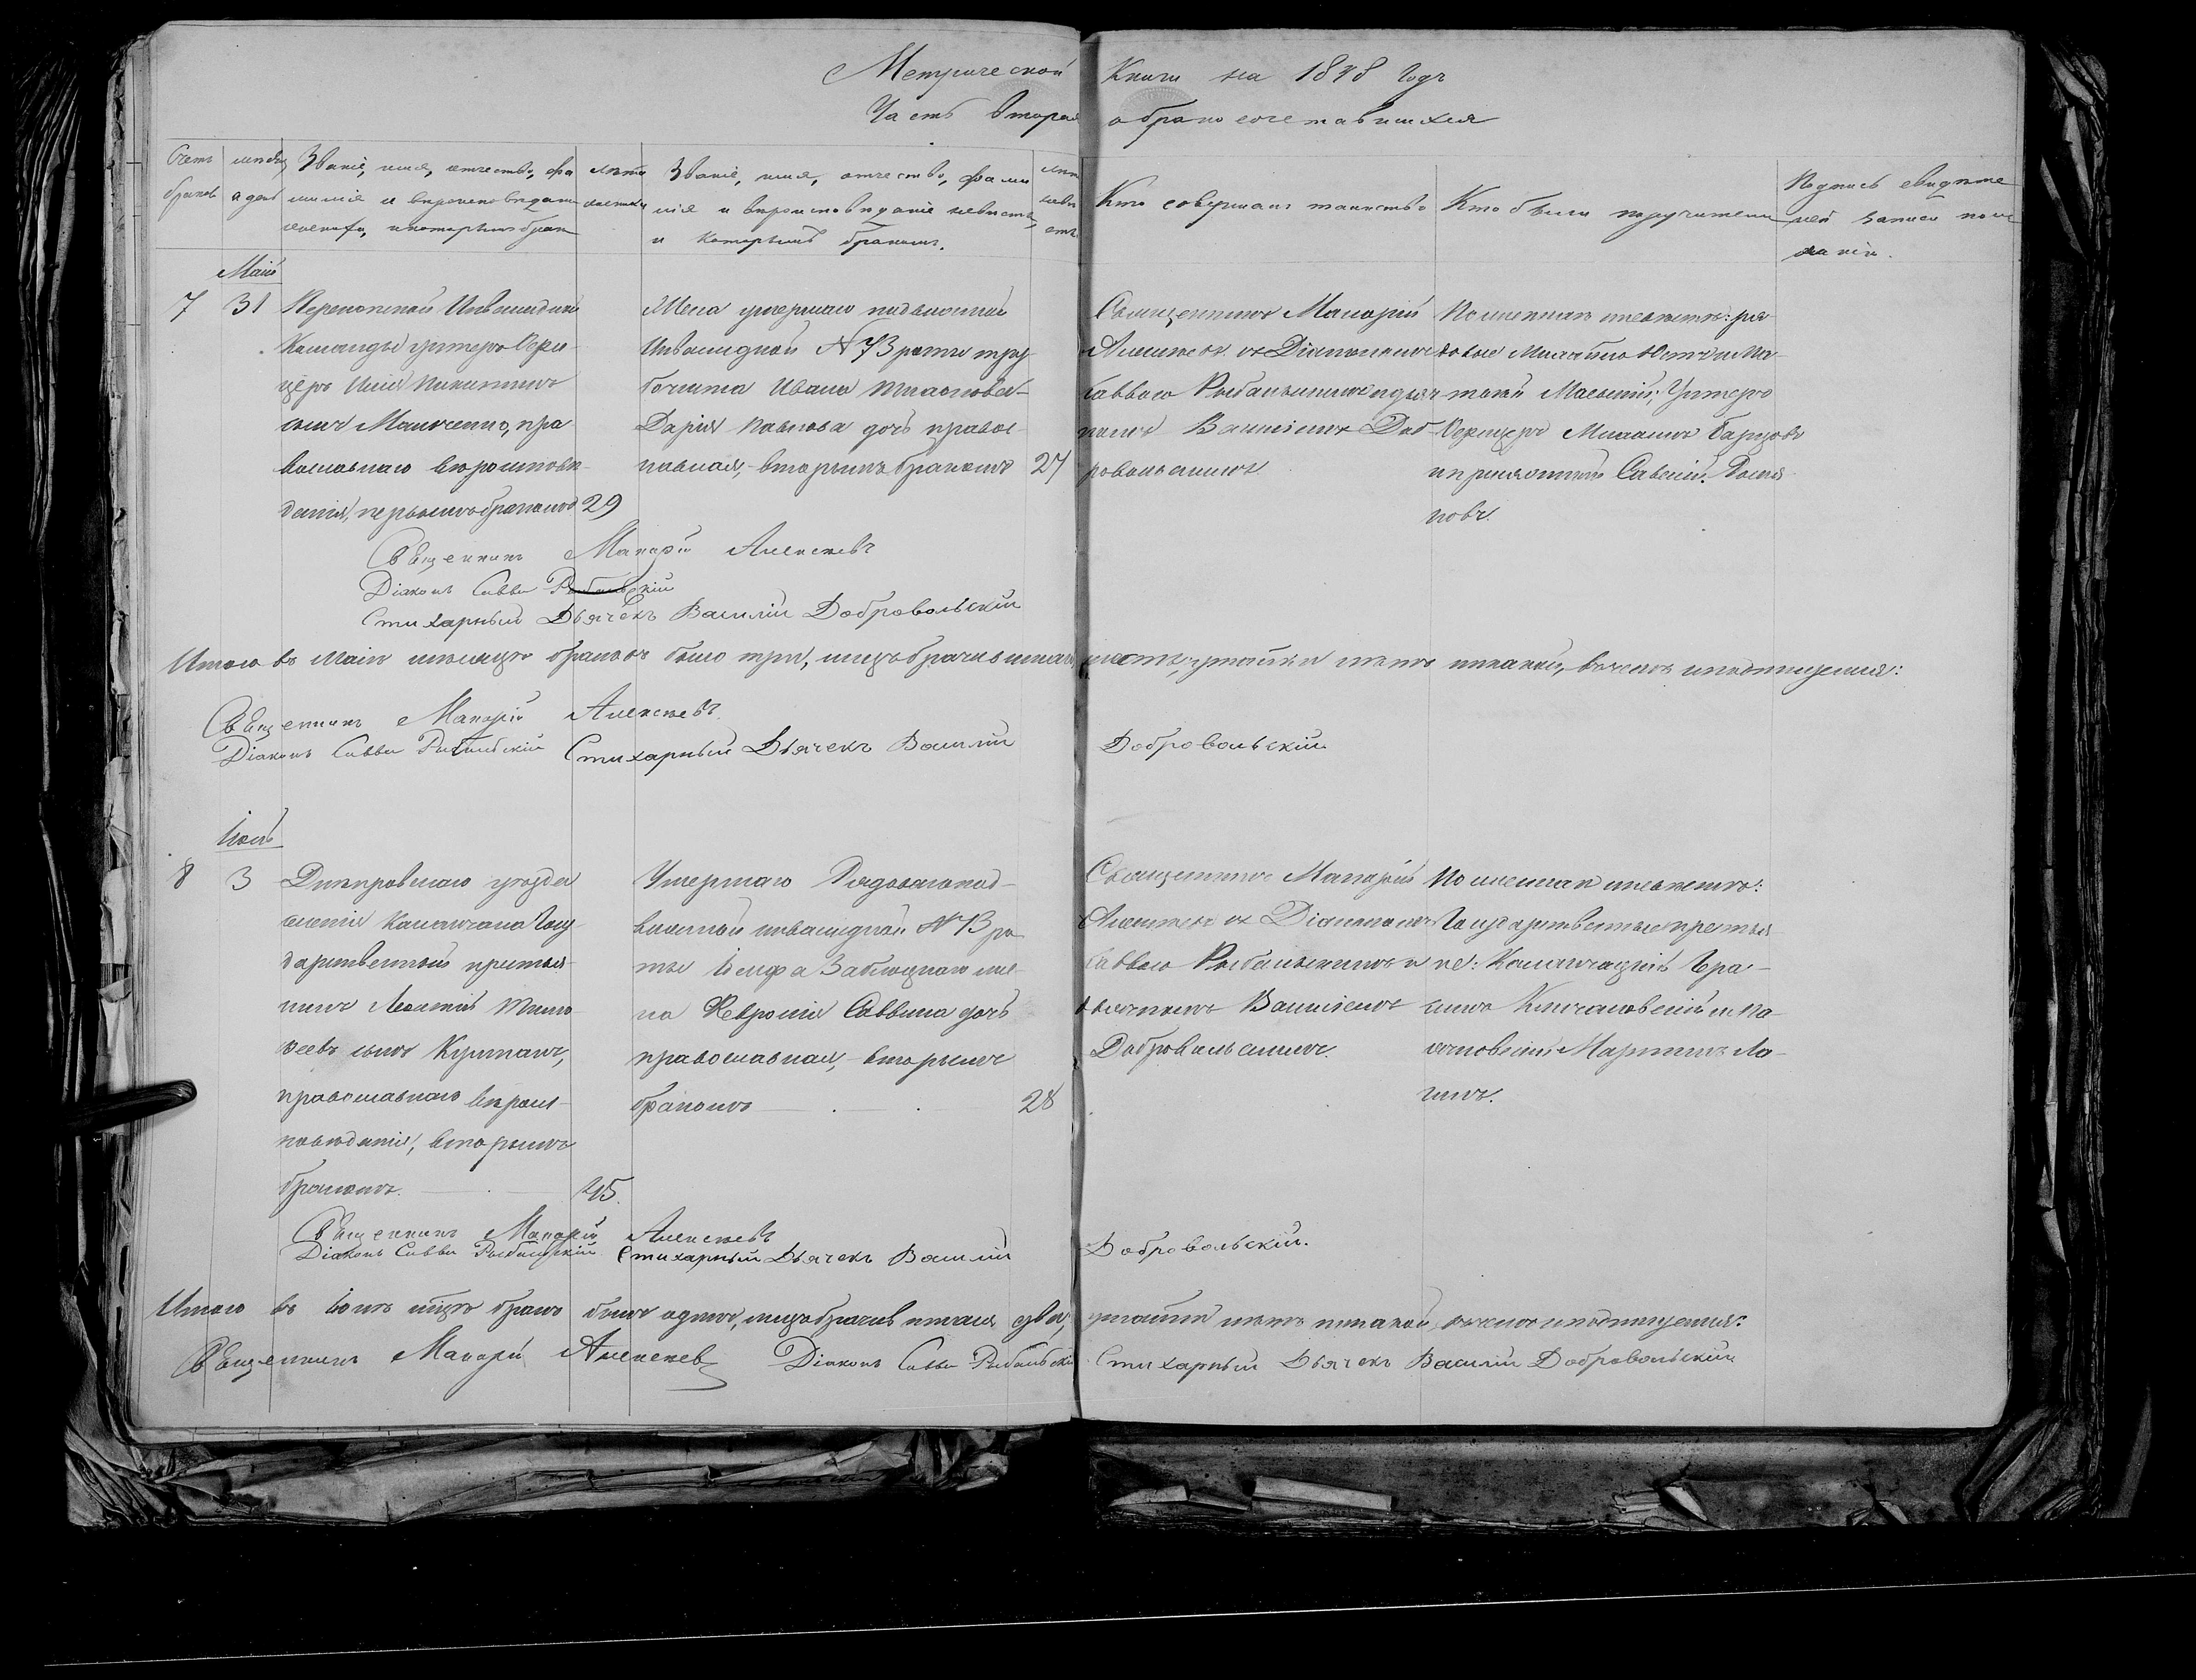 Метрической Книги на 1848 Годъ
Часть вторая о бракосочетавшихся
Счетъ браковъ
месяцъ и день
Званіе, имя, отчество, фа
милія и вероисповедан
жениха, и которымъ брак
лета жениха
Званіе, имя, отчество, фами
лія и вероисповеданіе невесты,
и которымъ бракомъ.
лета невесты
Кто совершалъ таинство
Кто были поручители
Подпись свидете
лей записи по же
ланію.
Маій
7
31
Перекопской Инвалидной
Команды унтеръ Офи-
церъ Никитинъ
сынъ Манченко, пра
вославнаго вероиспове-
данія, первымъ бракомъ
29
Жена умершаго подвижной
Инвалидной № 73 роты тру
бочиста Ивана
Дарія Павлова дочь правос-
лавная, вторымъ бракомъ
27
Священникъ Макарій
Алексеевъ съ Діакономъ
Саввою Рыбальскимъ и дьяч-
комъ Василіемъ Доб-
ровольскимъ
По женихе и невесте: ря-
довые
Унтеръ
Офицеръ
Савелій
новъ.
Священникъ Макарій Алексеевъ
Діаконъ Савва Рыбальскій
Стихарный Дьячекъ Василій Добровольскій
Итого въ Маіе месяце браковъ было три, лицъ брачившихся шесть, утайки нетъ никакой, въ чемъ и подпишемся:
Священникъ Макарій Алексеевъ
Діаконъ Савва Рыбальскій Стихарный Дьячекъ Василій Добровольскій
Іюнь
8
3
Днепровскаго уезда
селенія Каланчака Госу-
дарственный крестья-
нинъ Тимо-
феевъ сынъ
православнаго вероис-
поведанія, вторымъ
бракомъ.
45.
Умершаго Рядоваго под-
вижной инвалидной № 73 ро
ты Іосифа Заблоцкаго же-
на Февронія Саввина дочь
православная, вторымъ
бракомъ
28
Священникъ Макарій
Алексеевъ съ Діакономъ
Саввою Рыбальскимъ и
дьячкомъ Василіемъ
Добровольскимъ.
По женихе и невесте:
Государственные крестья
не: Каланчацкій Гра-
симъ и Ма-
Мартинъ
Священникъ Макарій Алексеевъ
Діаконъ Савва Рыбальскій Стихарный Дьячекъ Василій Добровольскій.
Итого въ Іюне месяце бракъ былъ одинъ, лицъ брачившихся два, утайки нетъ никакой, въ чемъ и подпишемся:
Священникъ Макарій Алексеевъ Діаконъ Савва Рыбальскій Стихарный Дьячекъ Василій Добровольскій